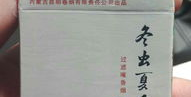 内蒙古昆明卷烟有限责任公司出品
冬虫夏
过滤嘴香烟